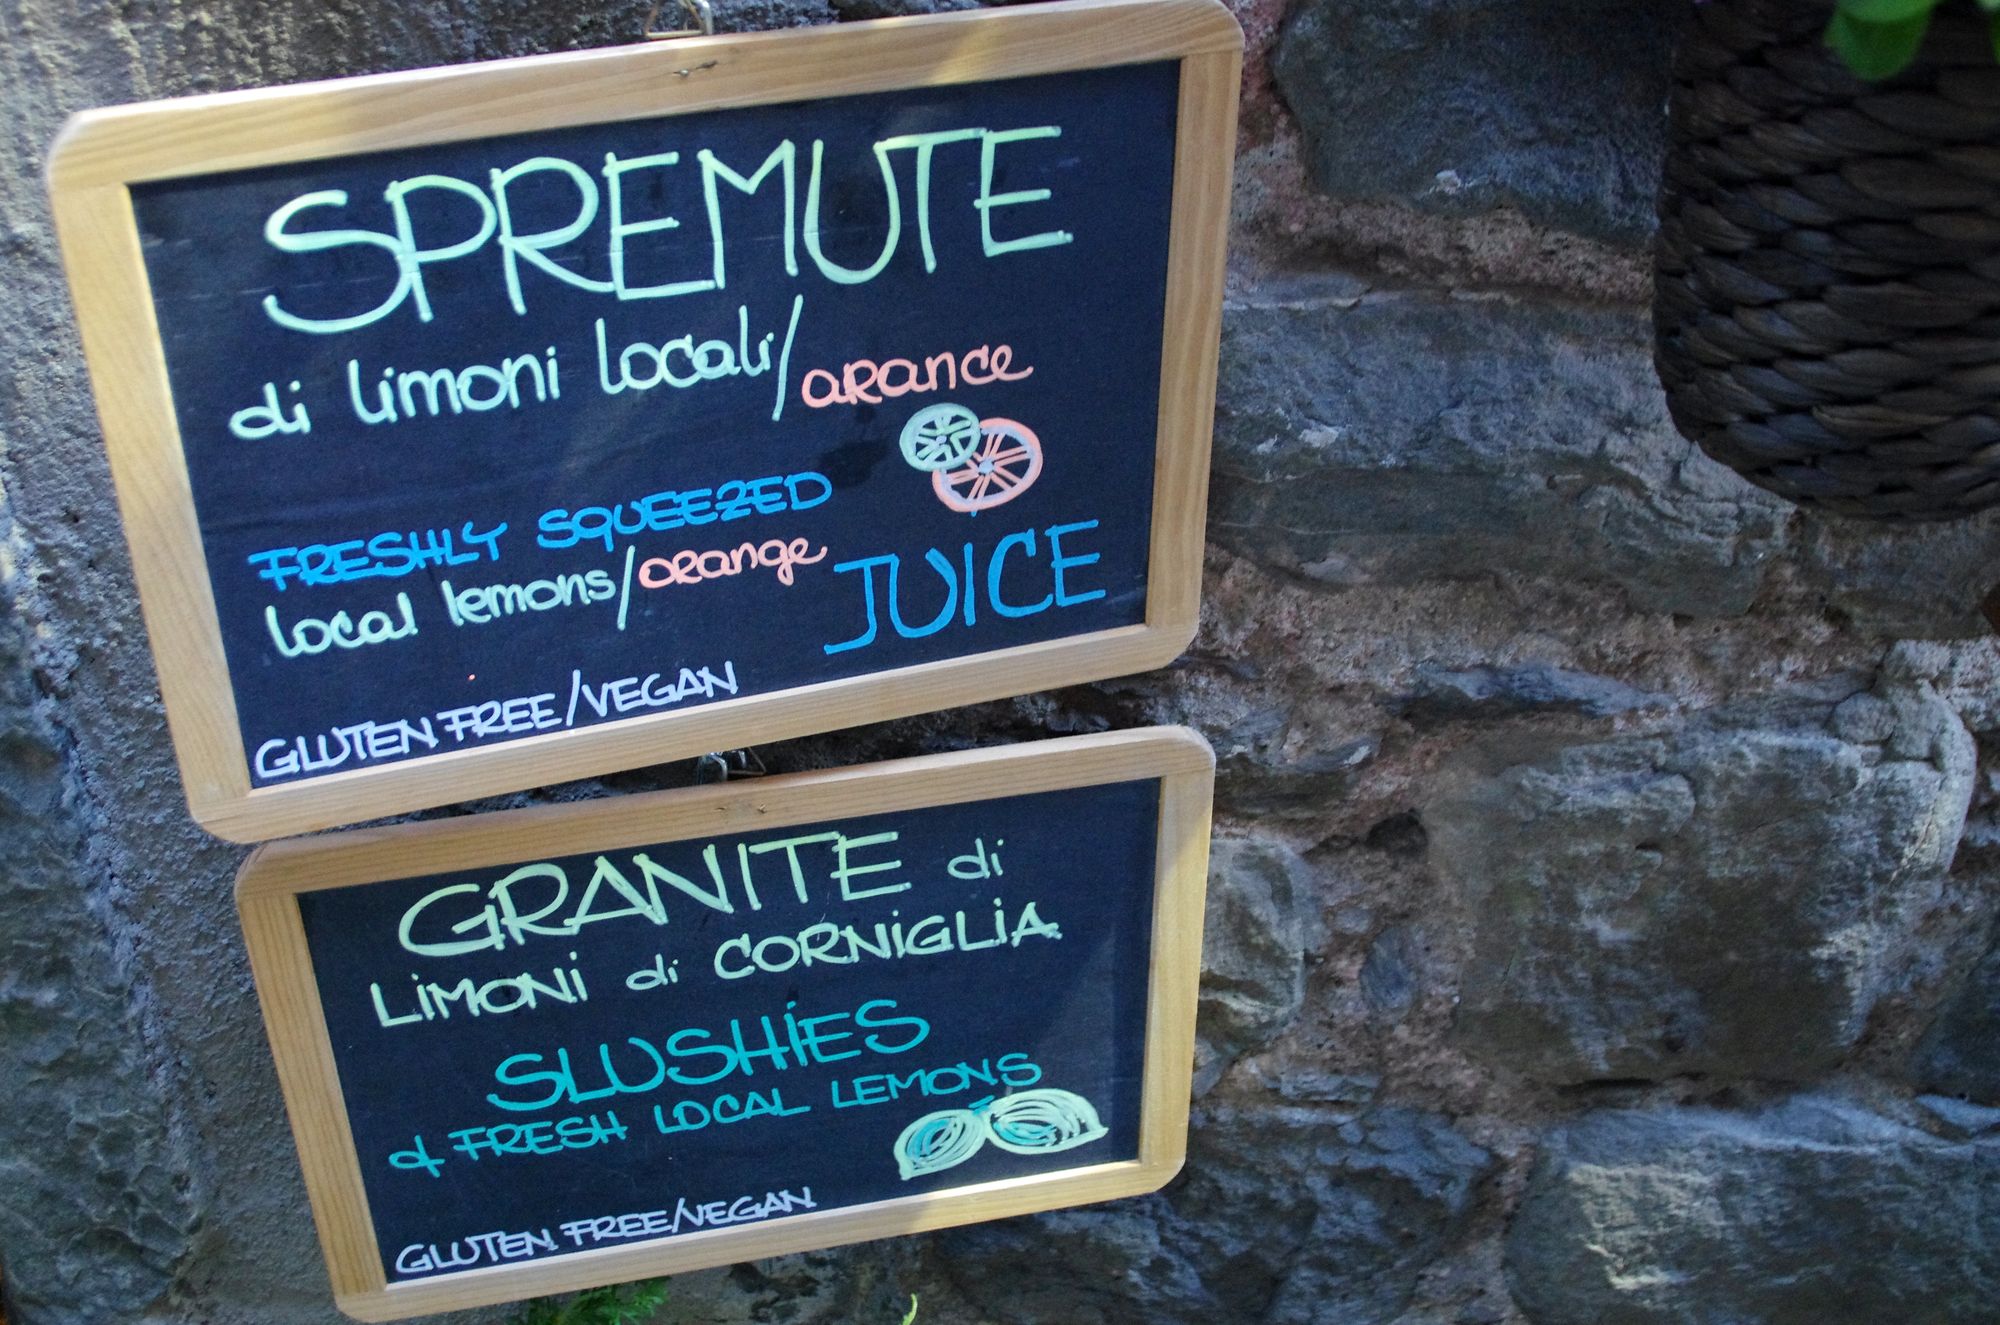 SPREMUTE
di limoni locali/arance
FRESHLY SQUEEZED
local lemons/orange JUICE
GLUTEN FREE/VEGAN
GRANITE di
LIMONI di CORNIGLIA
SLUSHIES
of FRESH LOCAL LEMONS
GLUTEN FREE/VEGAN